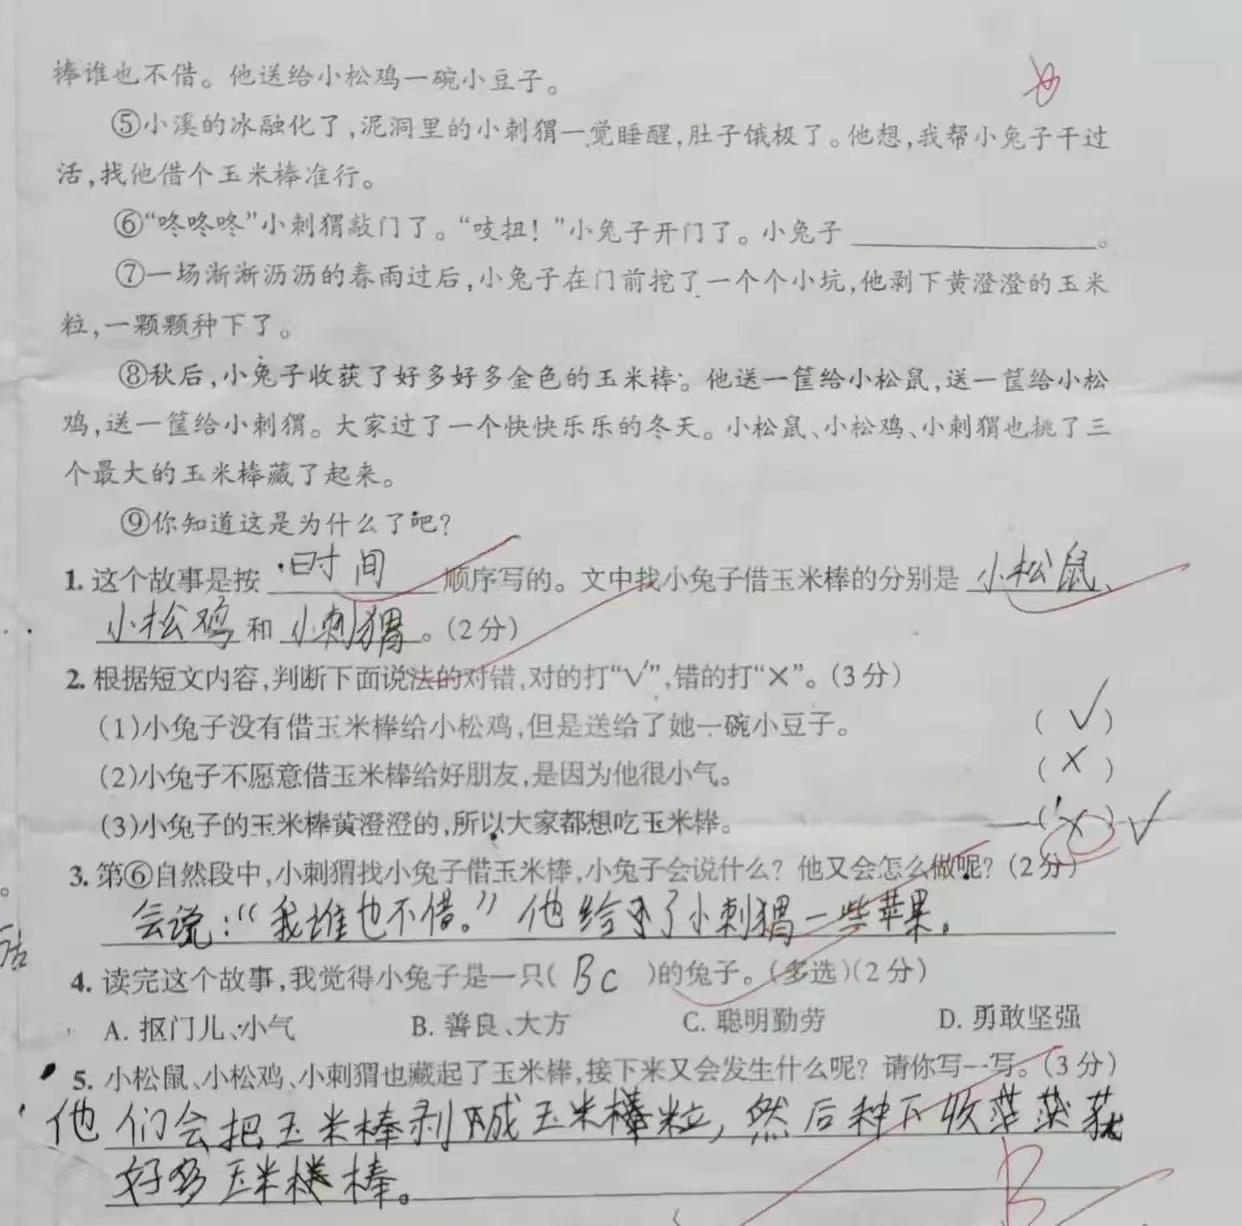 棒谁也不借。他送给小松鸡一碗小豆子。
⑤小溪的冰融化了,泥洞里的小刺猬一觉睡醒,肚子饿极了。他想,我帮小兔子干过
活,找他借个玉米棒准行。
⑥“咚咚咚”小刺猬敲门了。“吱扭!”小兔子开门了。小兔子____________。
⑦一场淅淅沥沥的春雨过后,小兔子在门前挖了一个个小坑,他剥下黄澄澄的玉米
粒,一颗颗种下了。
⑧秋后,小兔子收获了好多好多金色的玉米棒。他送一筐给小松鼠,送一筐给小松
鸡,送一筐给小刺猬。大家过了一个快快乐乐的冬天。小松鼠、小松鸡、小刺猬也挑了三
个最大的玉米棒藏了起来。
⑨你知道这是为什么了吧?
1. 这个故事是按 时间 顺序写的。文中找小兔子借玉米棒的分别是 小松鼠、
小松鸡 和 小刺猬 。(2分)
2. 根据短文内容,判断下面说法的对错,对的打“√”,错的打“×”。(3分)
(1)小兔子没有借玉米棒给小松鸡,但是送给了她一碗小豆子。 ( √ )
(2)小兔子不愿意借玉米棒给好朋友,是因为他很小气。 ( × )
(3)小兔子的玉米棒黄澄澄的,所以大家都想吃玉米棒。 ( × ) √
3. 第⑥自然段中,小刺猬找小兔子借玉米棒,小兔子会说什么?他又会怎么做呢?(2分)
会说:“我谁也不借。”他给了小刺猬一些苹果。
4. 读完这个故事,我觉得小兔子是一只( BC )的兔子。(多选)(2分)
A. 抠门儿、小气 B. 善良、大方 C. 聪明勤劳 D. 勇敢坚强
5. 小松鼠、小松鸡、小刺猬也藏起了玉米棒,接下来又会发生什么呢?请你写一写。(3分)
他们会把玉米棒剥成玉米粒,然后种下收获
好多玉米棒。
B